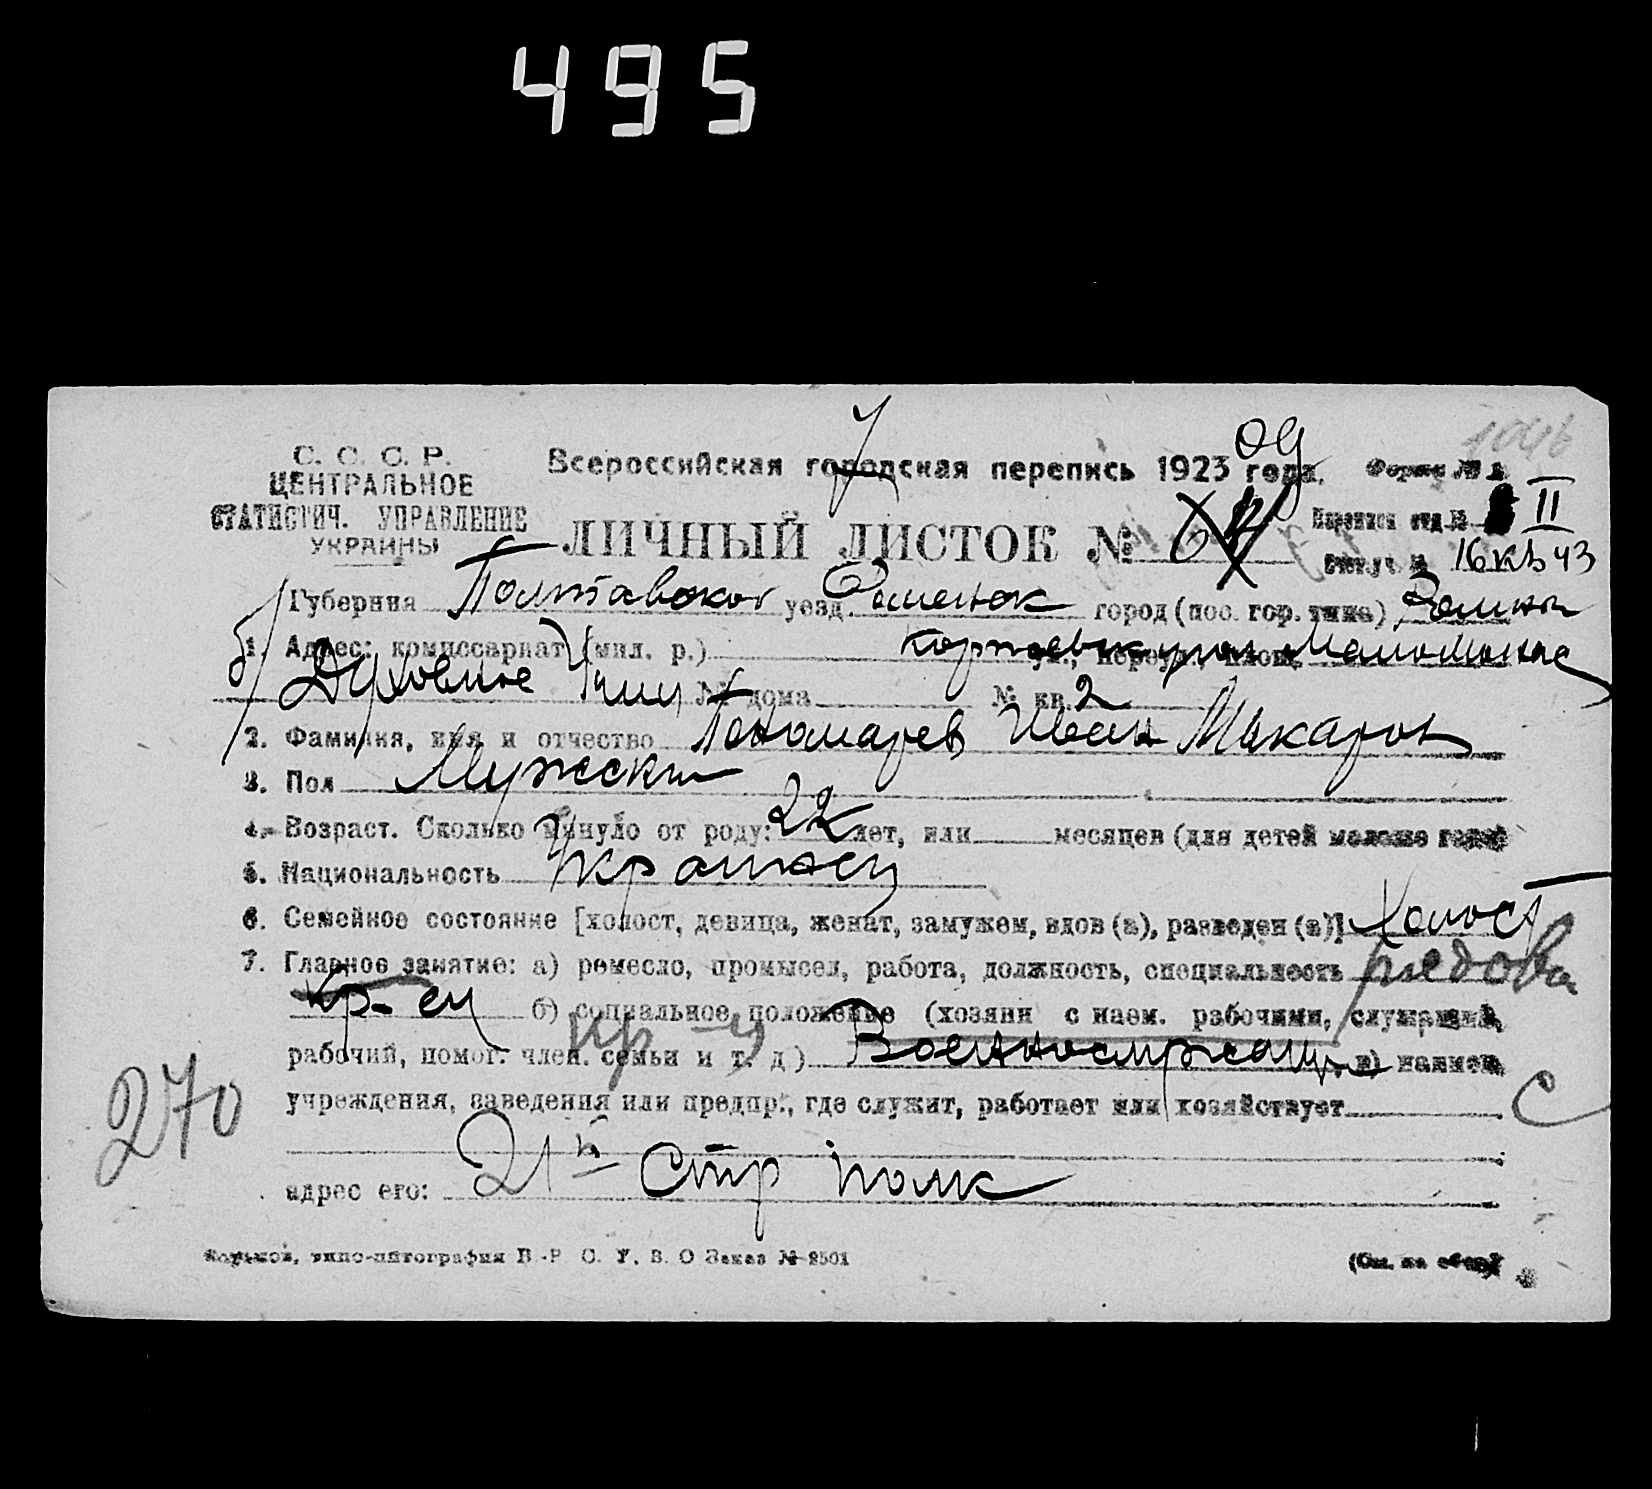 495
1046
С. С. С. Р.
ЦЕНТРАЛЬНОЕ
СТАТИСТИЧ. УПРАВЛЕНИЕ
УКРАИНЫ
Всероссийская городская перепись 1923 года.
Форма № 2
ЛИЧНЫЙ ЛИСТОК №
II
16 кв 43
Губерния Полтавской уезд Роменск город (пос. гор. типа) Ромны
1. Адрес: комиссариат (мил. р.)
Духовное Учил № дома № кв. 2
2. Фамилия, имя и отчество Пономарев Иван Макаров
3. Пол Мужски
4. Возраст. Сколько минуло от роду: 22 лет, или месяцев (для детей моложе года)
5. Национальность Украинец
6. Семейное состояние [холост, девица, женат, замужем, вдов (а), разведен (а)] Холост
7. Главное занятие: а) ремесло, промысел, работа, должность, специальность
кр-ец б) социальное положение (хозяин с наем. рабочими, служащий,
рабочий, помог. член. семьи и т. д.) Военнослужащ. в) наимен.
учреждения, заведения или предпр., где служит, работает или хозяйствует
270
С
адрес его: 21й Стр полк
Харьков, типо-литография В.-Р. С. У. В. О Заказ № 2501
(См. на обор.)